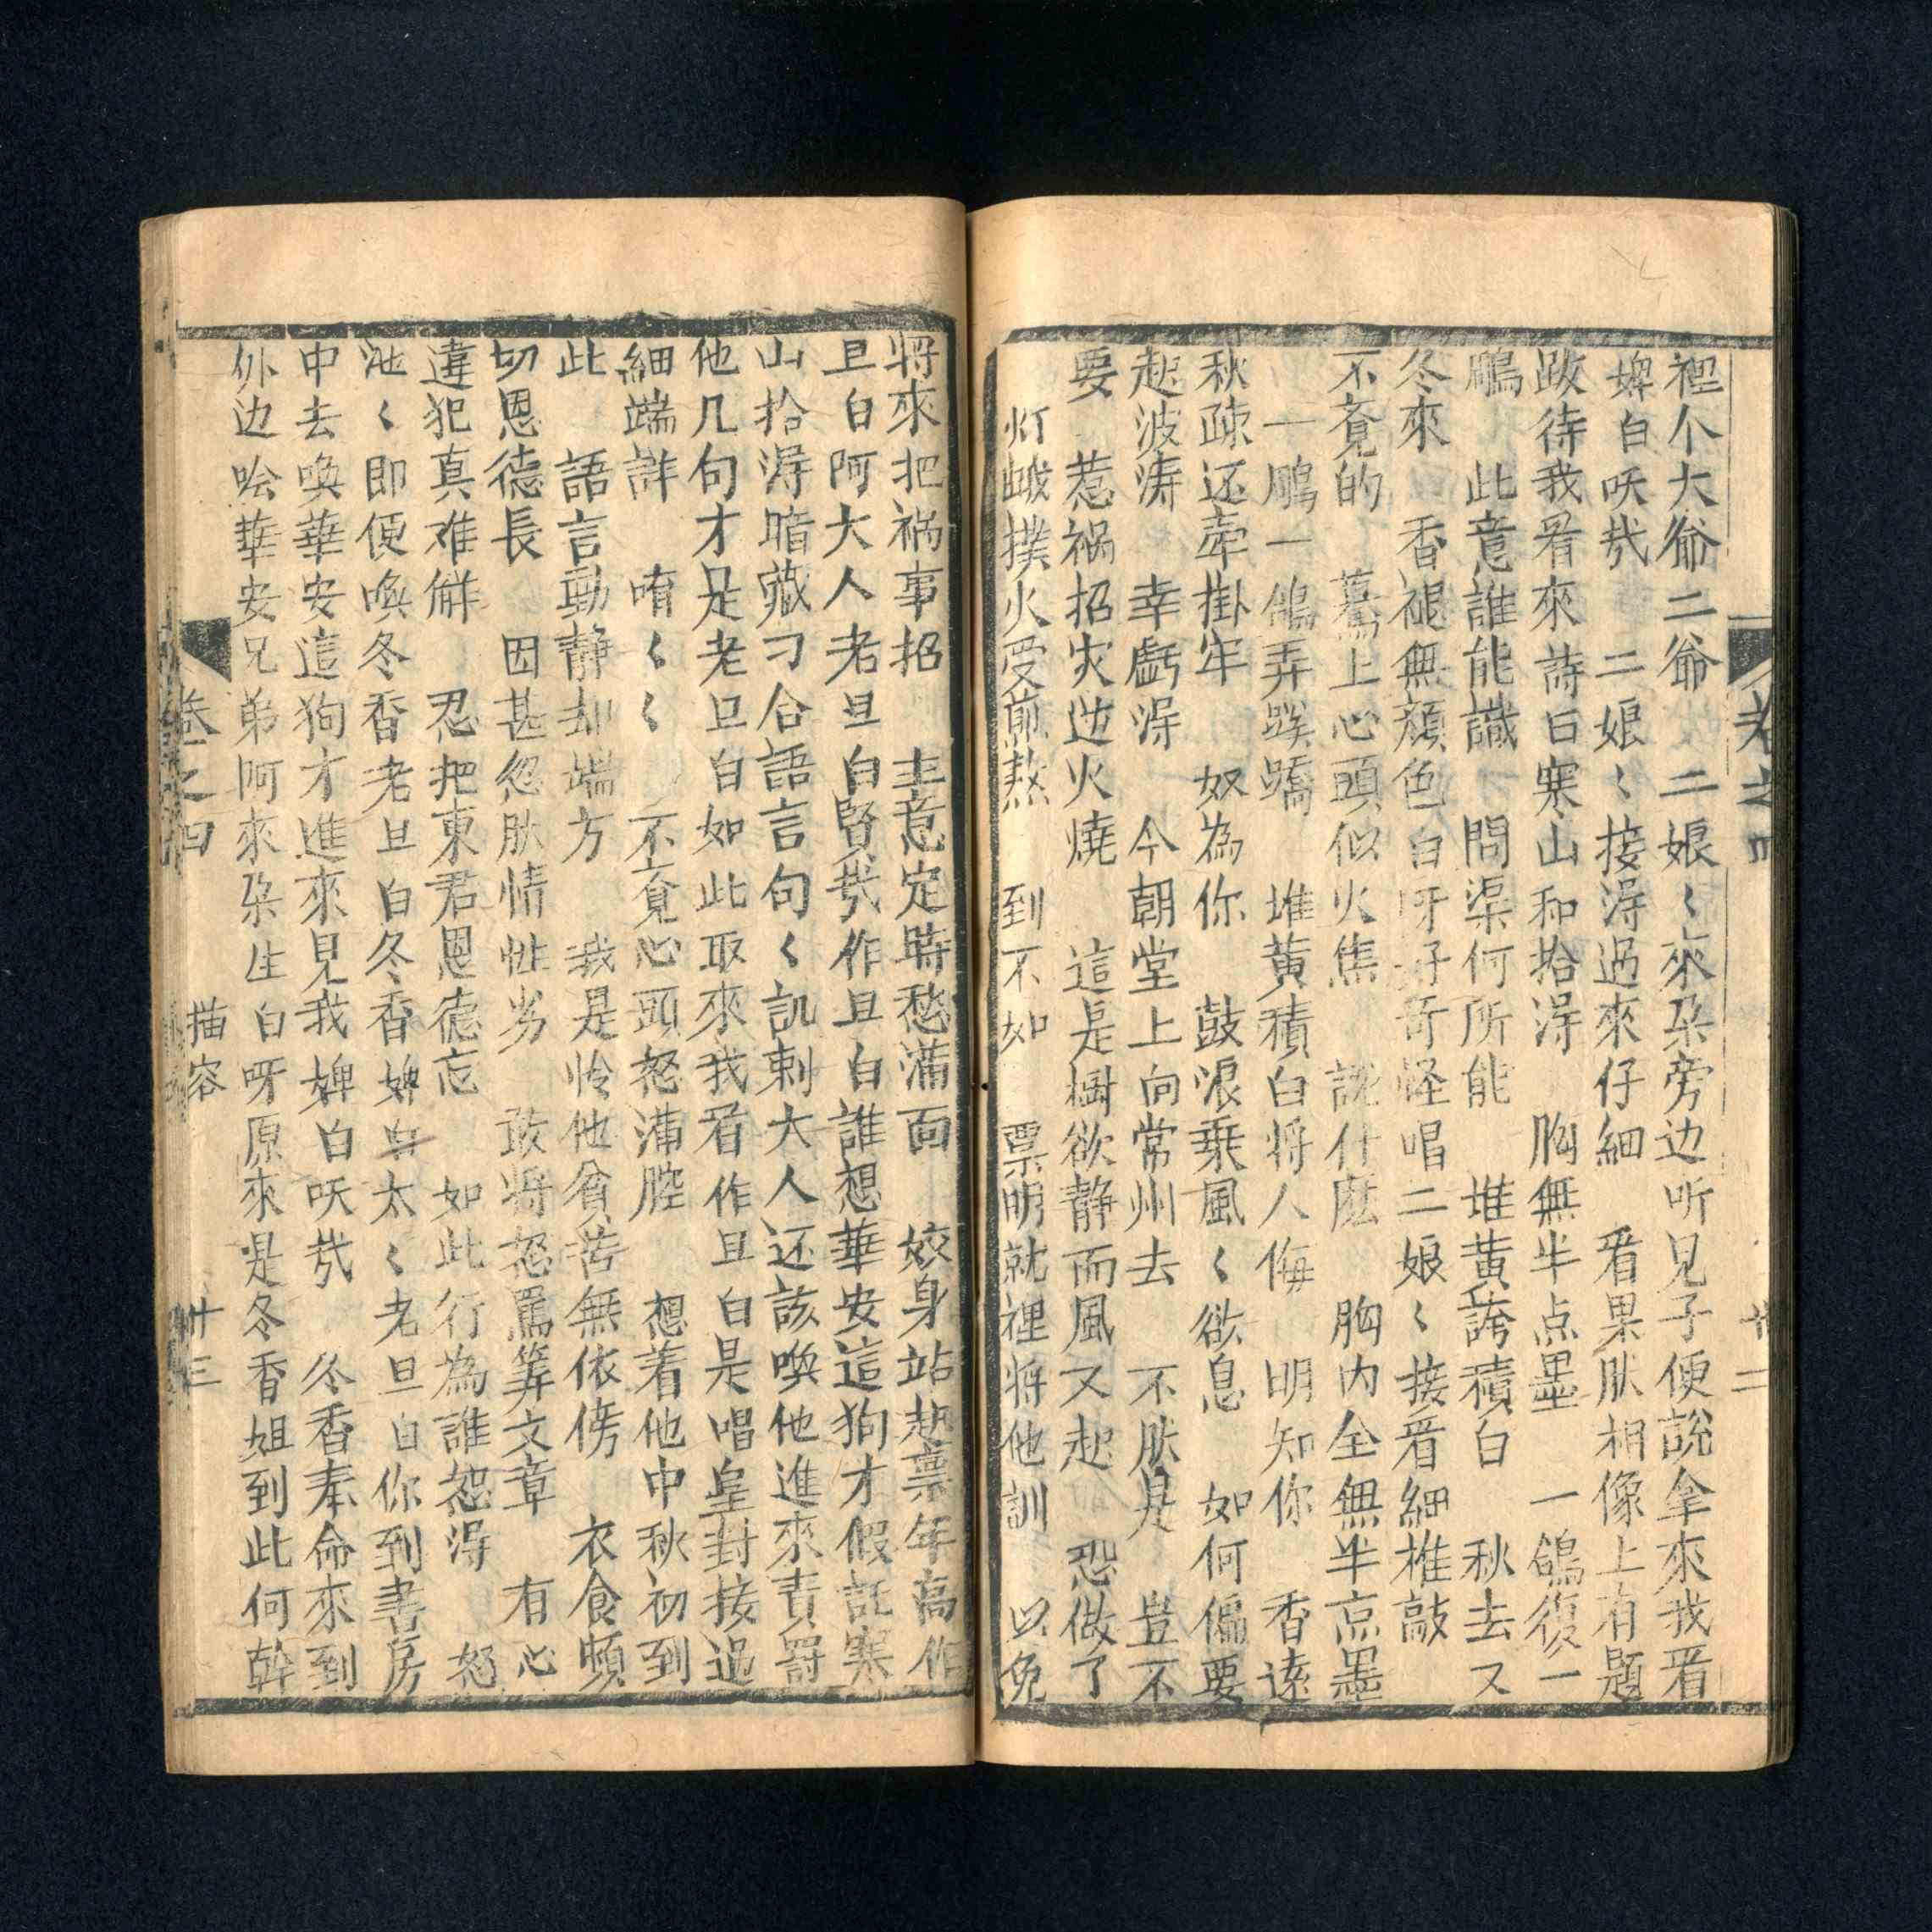 卷之四
廿二
裡个大爺二爺 二娘〻來朶旁边听見子便說拿來我看
婢白呋㢤 二娘〻接淂過來仔細 看果肰相像上有題
跋待我看來詩曰寒山和拾淂 胸無半点墨 一鴿復一
鵰 此意誰能識 問渠何所能 堆黄誇積白 秋去又
冬來 香褪無顔色白呀好奇怪唱二娘〻接看細推敲
不覔的 驀上心頭似火焦 說什庅 胸内全無半点墨
一鵰一鴿弄蹊蹺 堆黄積白将人侮 明知你 香逺
秋疎还牽掛牢 奴為你 鼓浪乗風〻欲息 如何偏要
起波涛 幸虧淂 今朝堂上向常州去 不肰是 豈不
要 惹禍招灾迯火燒 這是樹欲静而風又起 恐做了
灯蛾撲火受煎熬 到不如 禀明就裡将他訓 以免
将來把禍事招 主意定時愁滿面 姣身站起禀年高作
旦白阿大人老旦白賢㢤作旦白誰想華安這狗才假託寒
山拾淂暗藏刁合語言句〻訊刺大人还該喚他進來責罰
他几句才是老旦白如此取來我看作旦白是唱皇封接過
細端詳 唷〻〻 不覔心頭怒滿腔 想着他中秋初到
此 語言動静却端方 我是怜他貧苦無依傍 衣食頻
切恩德長 因甚忽肰情性劣 敢将怒罵筭文章 有心
違犯真难觧 忍把東君恩德忘 如此行為誰恕淂 怒
泚〻即便喚冬香老旦白冬香婢白太〻老旦白你到書房
中去喚華安這狗才進來見我婢白呋㢤 冬香奉命來到
外边哙華安兄弟阿來朶生白呀原來是冬香姐到此何幹
卷之四
描容
廿三